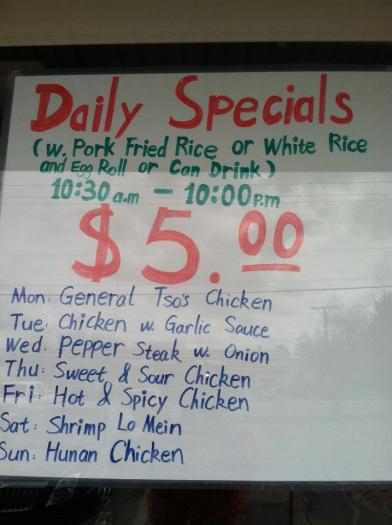 Daily Specials
(w. Pork Fried Rice or White Rice
and Egg Roll or Can Drink)
10:30 a.m - 10:00 P.m
$5.00
Mon: General Tso's Chicken
Tue: Chicken w. Garlic Sauce
Wed. Pepper Steak w. Onion
Thu: Sweet & Sour Chicken
Fri: Hot & Spicy Chicken
Sat: Shrimp Lo Mein
Sun: Hunan Chicken